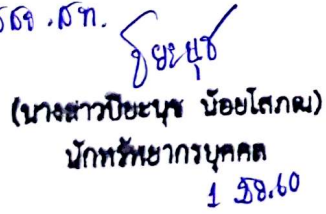 ปิยะนุช
(นางสาวปิยะนุช น้อยโสภณ)
นักทรัพยากรบุคคล
1 มิ.ย.60